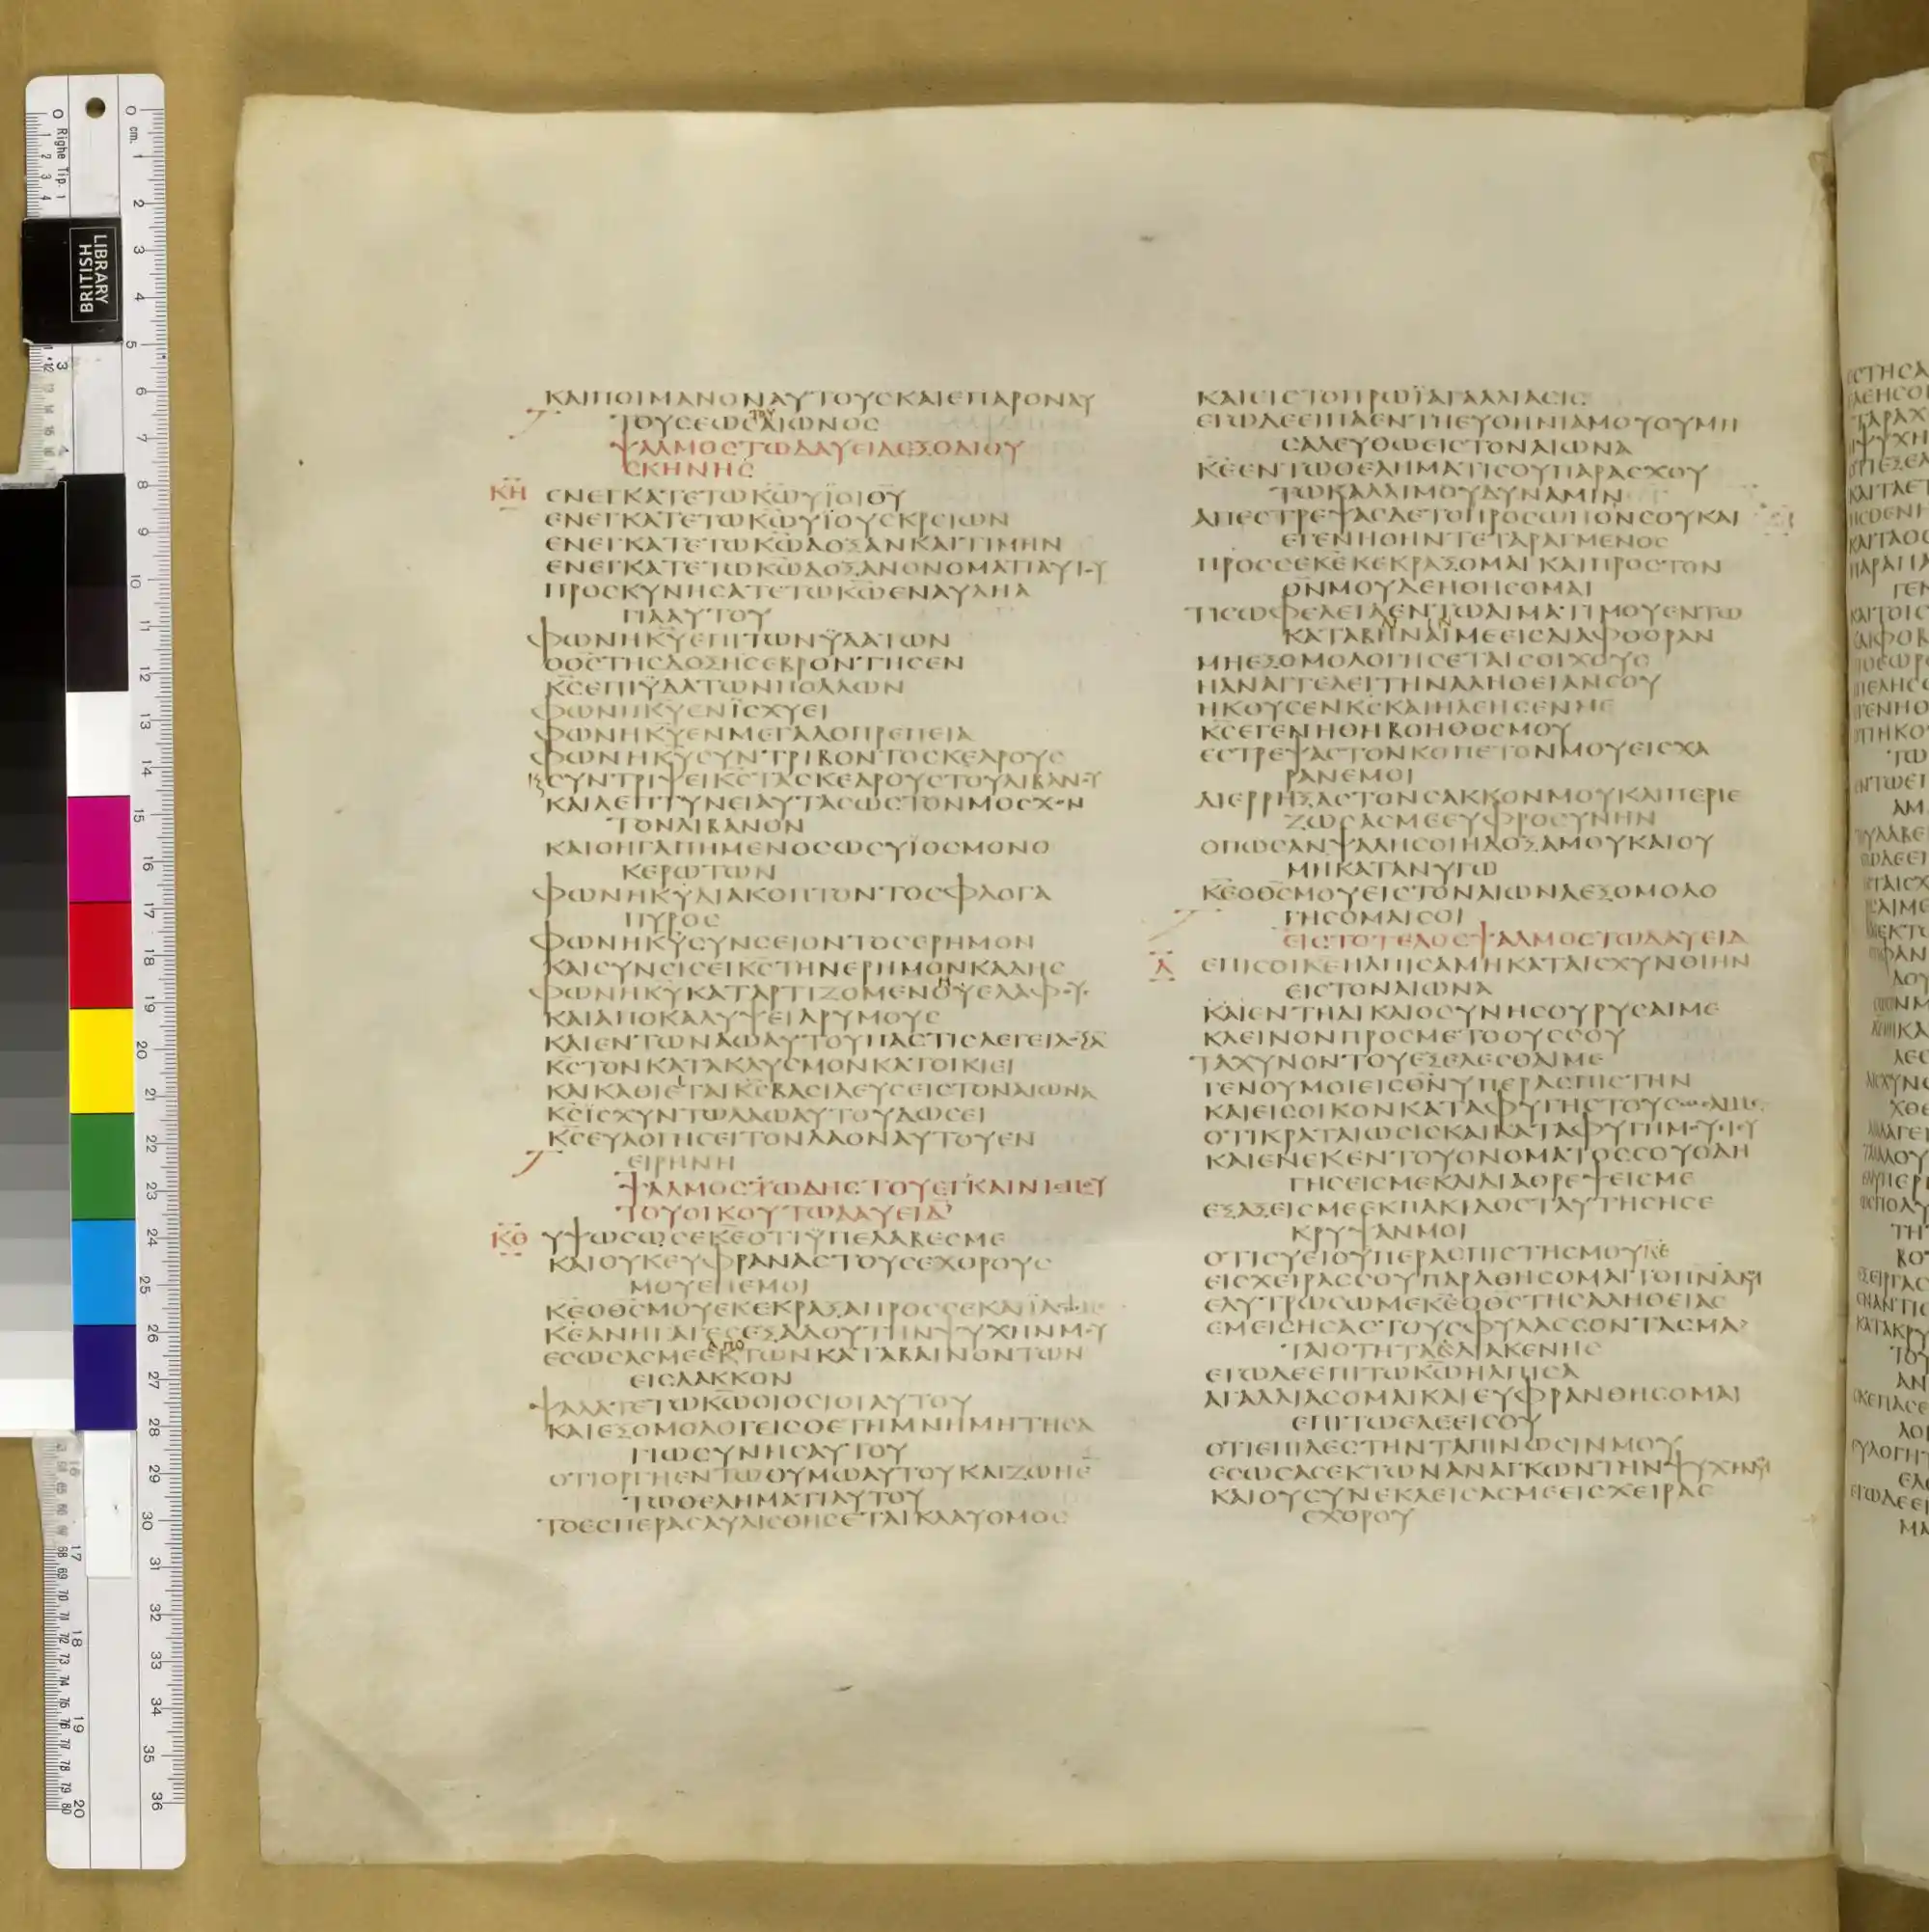 ΚΑΙΠΟΙΜΑΝΟΝΑΥΤΟΥΣΚΑΙΕΠΑΡΟΝΑΥ
ΤΟΥΣΕΩΣΑΙΩΝΟΣ
ΤΟΥ
ΨΑΛΜΟΣΤΩΔΑΥΕΙΔΕΞΟΔΙΟΥ
ΣΚΗΝΗΣ
ΚΗ
ΕΝΕΓΚΑΤΕΤΩΚΩΥΪΟΙΘΥ
ΕΝΕΓΚΑΤΕΤΩΚΩΥΪΟΥΣΚΡΕΙΩΝ
ΕΝΕΓΚΑΤΕΤΩΚΩΔΟΞΑΝΚΑΙΤΙΜΗΝ
ΕΝΕΓΚΑΤΕΤΩΚΩΔΟΞΑΝΟΝΟΜΑΤΙΑΥΤΟΥ
ΠΡΟΣΚΥΝΗΣΑΤΕΤΩΚΩΕΝΑΥΛΗΑ
ΓΙΑΑΥΤΟΥ
ΦΩΝΗΚΥΕΠΙΤΩΝΫΔΑΤΩΝ
ΟΘΣΤΗΣΔΟΞΗΣΕΒΡΟΝΤΗΣΕΝ
ΚΣΕΠΙΫΔΑΤΩΝΠΟΛΛΩΝ
ΦΩΝΗΚΥΕΝΪΣΧΥΕΙ
ΦΩΝΗΚΥΕΝΜΕΓΑΛΟΠΡΕΠΕΙΑ
ΦΩΝΗΚΥΣΥΝΤΡΙΒΟΝΤΟΣΚΕΔΡΟΥΣ
ΚΣΥΝΤΡΙΨΕΙΚΣΤΑΣΚΕΔΡΟΥΣΤΟΥΛΙΒΑΝΟΥ
ΚΑΙΛΕΠΤΥΝΕΙΑΥΤΑΣΩΣΤΟΝΜΟΣΧΟΝ
ΤΟΝΛΙΒΑΝΟΝ
ΚΑΙΟΗΓΑΠΗΜΕΝΟΣΩΣΥΪΟΣΜΟΝΟ
ΚΕΡΩΤΩΝ
ΦΩΝΗΚΥΔΙΑΚΟΠΤΟΝΤΟΣΦΛΟΓΑ
ΠΥΡΟΣ
ΦΩΝΗΚΥΣΥΝΣΕΙΟΝΤΟΣΕΡΗΜΟΝ
ΚΑΙΣΥΝΣΙΣΕΙΚΣΤΗΝΕΡΗΜΟΝΚΑΔΗΣ
ΦΩΝΗΚΥΚΑΤΑΡΤΙΖΟΜΕΝΟΥΕΛΑΦΟΥΣ
ΚΑΙΑΠΟΚΑΛΥΨΕΙΔΡΥΜΟΥΣ
ΚΑΙΕΝΤΩΝΑΩΑΥΤΟΥΠΑΣΤΙΣΛΕΓΕΙΔΟΞΑ
ΚΣΤΟΝΚΑΤΑΚΛΥΣΜΟΝΚΑΤΟΙΚΙΕΙ
ΚΑΙΚΑΘΙΕΤΑΙΚΣΒΑΣΙΛΕΥΣΕΙΣΤΟΝΑΙΩΝΑ
ΚΣΪΣΧΥΝΤΩΛΑΩΑΥΤΟΥΔΩΣΕΙ
ΚΣΕΥΛΟΓΗΣΕΙΤΟΝΛΑΟΝΑΥΤΟΥΕΝ
ΕΙΡΗΝΗ
ΨΑΛΜΟΣΩΔΗΣΤΟΥΕΓΚΑΙΝΙΣΜΟΥ
ΤΟΥΟΙΚΟΥΤΩΔΑΥΕΙΔ
ΚΘ
ΥΨΩΣΩΣΕΚΕΟΤΙΫΠΕΛΑΒΕΣΜΕ
ΚΑΙΟΥΚΕΥΦΡΑΝΑΣΤΟΥΣΕΧΘΡΟΥΣ
ΜΟΥΕΠΕΜΟΙ
ΚΕΟΘΣΜΟΥΕΚΕΚΡΑΞΑΠΡΟΣΣΕΚΑΙΪΑΣΩΜΕ
ΚΕΑΝΗΓΑΓΕΣΕΞΑΔΟΥΤΗΝΨΥΧΗΝΜΟΥ
ΑΠΟ
ΕΣΩΣΑΣΜΕΕΚΤΩΝΚΑΤΑΒΑΙΝΟΝΤΩΝ
ΕΙΣΛΑΚΚΟΝ
ΨΑΛΑΤΕΤΩΚΩΟΙΟΣΙΟΙΑΥΤΟΥ
ΚΑΙΕΞΟΜΟΛΟΓΕΙΣΘΕΤΗΜΝΗΜΗΤΗΣΑ
ΓΙΩΣΥΝΗΣΑΥΤΟΥ
ΟΤΙΟΡΓΗΕΝΤΩΘΥΜΩΑΥΤΟΥΚΑΙΖΩΗΕ
ΤΩΘΕΛΗΜΑΤΙΑΥΤΟΥ
ΤΟΕΣΠΕΡΑΣΑΥΛΙΣΘΗΣΕΤΑΙΚΛΑΥΘΜΟΣ
ΚΑΙΕΙΣΤΟΠΡΩΪΑΓΑΛΛΙΑΣΙΣ
ΕΓΩΔΕΕΙΠΑΕΝΤΗΕΥΘΗΝΙΑΜΟΥΟΥΜΗ
ΣΑΛΕΥΘΩΕΙΣΤΟΝΑΙΩΝΑ
ΚΕΕΝΤΩΘΕΛΗΜΑΤΙΣΟΥΠΑΡΑΣΧΟΥ
ΤΩΚΑΛΛΙΜΟΥΔΥΝΑΜΙΝ
ΑΠΕΣΤΡΕΨΑΣΔΕΤΟΠΡΟΣΩΠΟΝΣΟΥΚΑΙ
ΕΓΕΝΗΘΗΝΤΕΤΑΡΑΓΜΕΝΟΣ
ΠΡΟΣΣΕΚΕΚΕΚΡΑΞΟΜΑΙΚΑΙΠΡΟΣΤΟΝ
ΘΝΜΟΥΔΕΗΘΗΣΟΜΑΙ
ΤΙΣΩΦΕΛΕΙΑΕΝΤΩΑΙΜΑΤΙΜΟΥΕΝΤΩ
ΚΑΤΑΒΗΝΑΙΜΕΕΙΣΔΙΑΦΘΟΡΑΝ
ΜΗΕΞΟΜΟΛΟΓΗΣΕΤΑΙΣΟΙΧΟΥΣ
ΗΑΝΑΓΓΕΛΕΙΤΗΝΑΛΗΘΕΙΑΝΣΟΥ
ΗΚΟΥΣΕΝΚΣΚΑΙΗΛΕΗΣΕΝΜΕ
ΚΣΕΓΕΝΗΘΗΒΟΗΘΟΣΜΟΥ
ΕΣΤΡΕΨΑΣΤΟΝΚΟΠΕΤΟΝΜΟΥΕΙΣΧΑ
ΡΑΝΕΜΟΙ
ΔΙΕΡΡΗΞΑΣΤΟΝΣΑΚΚΟΝΜΟΥΚΑΙΠΕΡΙΕ
ΖΩΣΑΣΜΕΕΥΦΡΟΣΥΝΗΝ
ΟΠΩΣΑΝΨΑΛΗΣΟΙΗΔΟΞΑΜΟΥΚΑΙΟΥ
ΜΗΚΑΤΑΝΥΓΩ
ΚΕΟΘΣΜΟΥΕΙΣΤΟΝΑΙΩΝΑΕΞΟΜΟΛΟ
ΓΗΣΟΜΑΙΣΟΙ
ΕΙΣΤΟΤΕΛΟΣΨΑΛΜΟΣΤΩΔΑΥΕΙΔ
Λ
ΕΠΙΣΟΙΚΕΗΛΠΙΣΑΜΗΚΑΤΑΙΣΧΥΝΘΙΗΝ
ΕΙΣΤΟΝΑΙΩΝΑ
ΚΑΙΕΝΤΗΔΙΚΑΙΟΣΥΝΗΣΟΥΡΥΣΑΙΜΕ
ΚΛΕΙΝΟΝΠΡΟΣΜΕΤΟΟΥΣΣΟΥ
ΤΑΧΥΝΟΝΤΟΥΕΞΕΛΕΣΘΑΙΜΕ
ΓΕΝΟΥΜΟΙΕΙΣΘΝΥΠΕΡΑΣΠΙΣΤΗΝ
ΚΑΙΕΙΣΟΙΚΟΝΚΑΤΑΦΥΓΗΣΤΟΥΣΩΣΑΙΜΕ
ΟΤΙΚΡΑΤΑΙΩΣΙΣΚΑΙΚΑΤΑΦΥΓΗΜΟΥΕΙΣΥ
ΚΑΙΕΝΕΚΕΝΤΟΥΟΝΟΜΑΤΟΣΣΟΥΟΔΗ
ΓΗΣΕΙΣΜΕΚΑΙΔΙΑΘΡΕΨΕΙΣΜΕ
ΕΞΑΞΕΙΣΜΕΕΚΠΑΚΙΔΟΣΤΑΥΤΗΣΗΣΕ
ΚΡΥΨΑΝΜΟΙ
ΟΤΙΣΥΕΙΟΥΠΕΡΑΣΠΙΣΤΗΣΜΟΥΚΕ
ΕΙΣΧΕΙΡΑΣΣΟΥΠΑΡΑΘΗΣΟΜΑΙΤΟΠΝΑΜΟΥ
ΕΛΥΤΡΩΣΩΜΕΚΕΟΘΣΤΗΣΑΛΗΘΕΙΑΣ
ΕΜΕΙΣΗΣΑΣΤΟΥΣΦΥΛΑΣΣΟΝΤΑΣΜΑ
ΤΑΙΟΤΗΤΑΣΔΙΑΚΕΝΗΣ
ΕΓΩΔΕΕΠΙΤΩΚΩΗΛΠΙΣΑ
ΑΓΑΛΛΙΑΣΟΜΑΙΚΑΙΕΥΦΡΑΝΘΗΣΟΜΑΙ
ΕΠΙΤΩΕΛΕΕΙΣΟΥ
ΟΤΙΕΠΙΔΕΣΤΗΝΤΑΠΙΝΩΣΙΝΜΟΥ
ΕΣΩΣΑΣΕΚΤΩΝΑΝΑΓΚΩΝΤΗΝΨΥΧΗΝΜΟΥ
ΚΑΙΟΥΣΥΝΕΚΛΕΙΣΑΣΜΕΕΙΣΧΕΙΡΑΣ
ΕΧΘΡΟΥ
BRITISH
LIBRARY
cm.
Righe Tip.